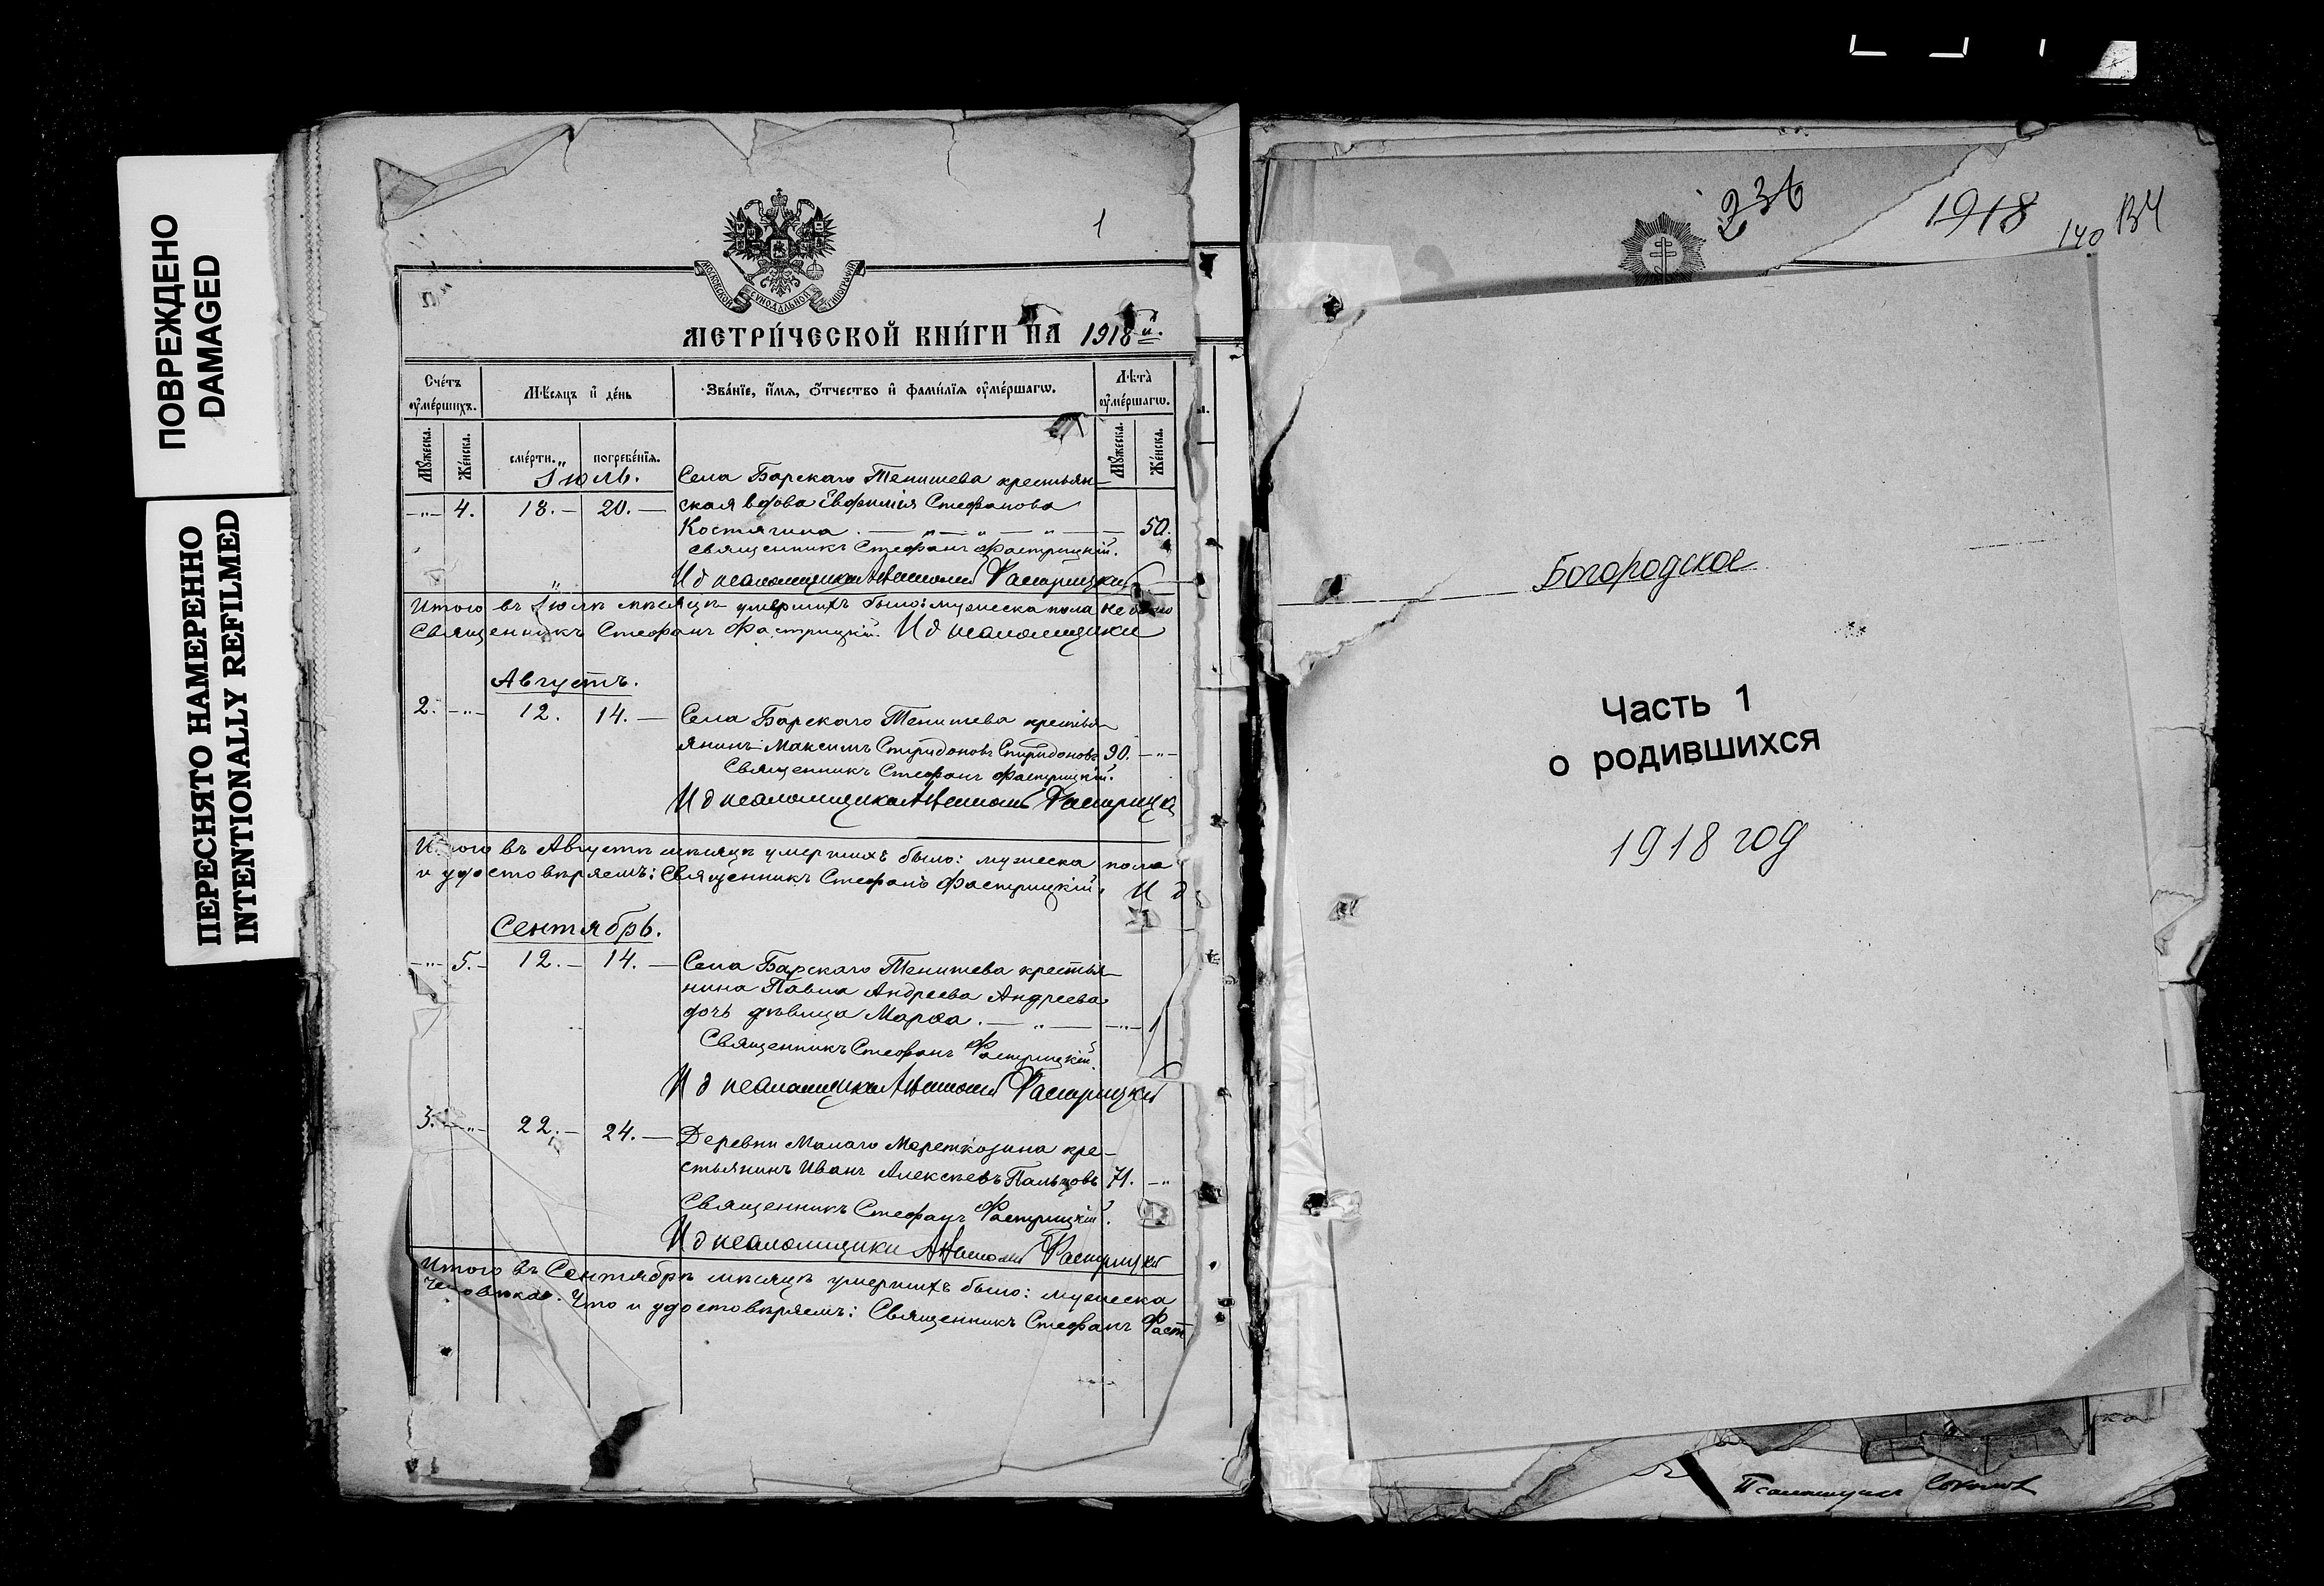 ПОВРЕЖДЕНО
DAMAGED
ПЕРЕСНЯТО НАМЕРЕННО
INTENTIONALLY REFILMED
1
МОСКОВСКОЙ СУНОДАЛЬНОЙ ТИПОГРАФІИ
МЕТРИ́ЧЕСКОЙ КНИ́ГИ НА 1918 й.
Сче́тъ оу҆ме́ршихъ.
Мѣ́сяцъ и҆ де́нь
Зва́нїе, и҆́мѧ, ѻ҆́тчество и҆ фами́лїѧ оу҆ме́ршагѡ.
Лѣта̀ оу҆ме́ршагѡ.
Мꙋ́жеска. Же́нска. сме́рти. погребе́нїѧ. Мꙋ́жеска. Же́нска.
Іюль. Села Барскаго Тенишева крестьян-
-"- 4. 18.- 20.- ская вдова Евфимія Стефанова
Костягина. - " - " - " - 50.
Священникъ Стефанъ Фастрицкій.
И д псаломщика Фастрицкій
Итого въ Іюлѣ мѣсяцѣ умершихъ было: мужеска пола не было
Священникъ Стефанъ Фастрицкій. И д псаломщика
Августъ.
2. -"- 12. 14.- Села Барскаго Тенишева кресть-
янинъ Максимъ Спиридоновъ Спиридоновъ 90. -"-
Священникъ Стефанъ Фастрицкій.
И д псаломщика Фастрицкі
Итого въ Августѣ мѣсяцѣ умершихъ было: мужеска пола
и удостовѣряемъ: Священникъ Стефанъ Фастрицкій. И д
Сентябрь.
-"- 5.- 12.- 14.- Села Барскаго Тенишева крестья-
нина Павла Андреева Андреева
дочь дѣвица Марѳа. - " - -"- 1
Священникъ Стефанъ Фастрицкій.
И д псаломщика Фастрицкій
3. -"- 22.- 24.- Деревни Малаго Мареткозина кре-
стьянинъ Иванъ Алексѣевъ Пальцовъ 71. -"-
Священникъ Стефанъ Фастрицкій.
И д псаломщика Фастрицкій
Итого въ Сентябрѣ мѣсяцѣ умершихъ было: мужеска
человѣка. Что и удостовѣряемъ: Священникъ Стефанъ Фаст
236
1918
140
Богородское
Часть 1
о родившихся
1918 год
Псаломщикъ Соколов